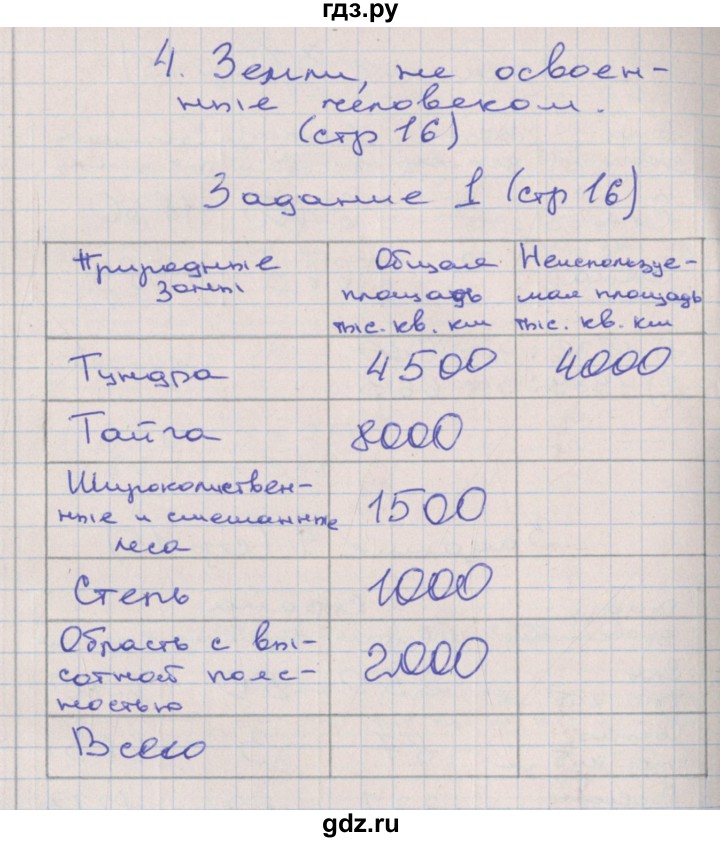 гдз.ру
4. Земли, не освоен-
ные человеком.
(стр 16)
Задание 1 (стр 16)
Природные
зоны
Общая
площадь
тыс. кв. км
Неиспользуе-
мая площадь
тыс. кв. км
Тундра 4500 4000
Тайга 8000
Широколиствен-
ные и смешанные
леса
1500
Степь 1000
Область с вы-
сотной пояс-
ностью
2000
Всего
gdz.ru